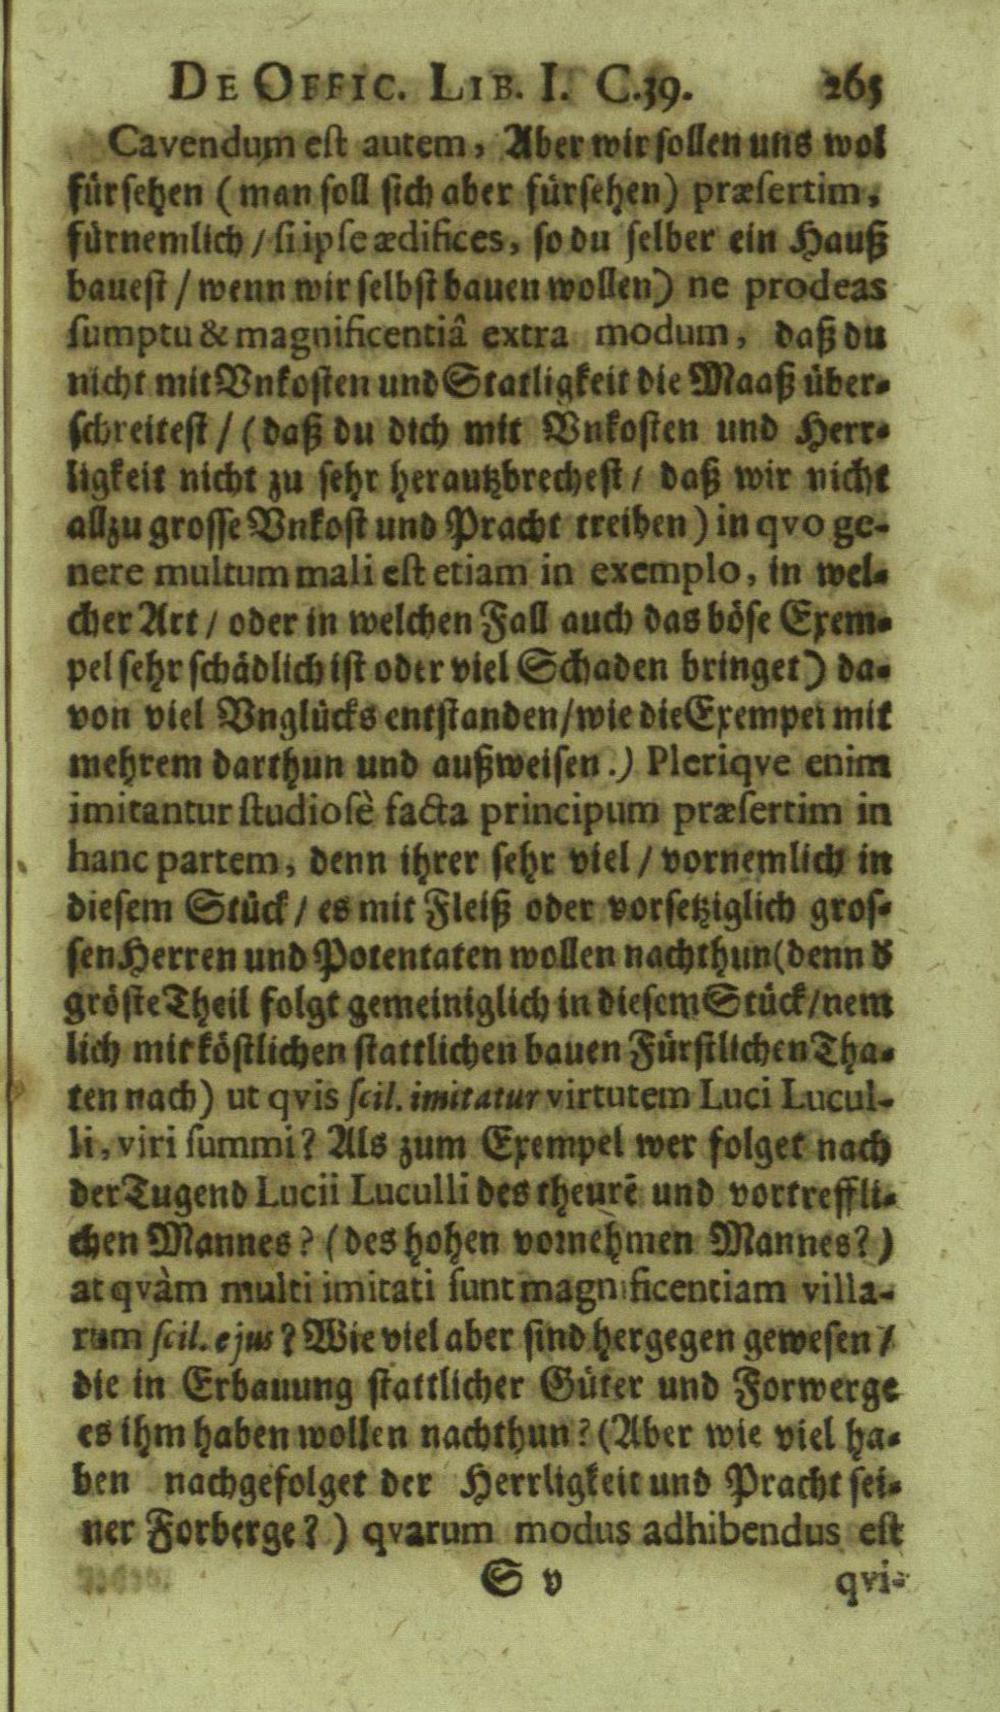 DE OFFIC. LIB. I. C.39. 265
Cavendum est autem, Aber wir sollen uns wol
fürsehen (man soll sich aber fürsehen) præsertim,
fürnemlich / si ipse ædifices, so du selber ein Hauß
bauest / wenn wir selbst bauen wollen) ne prodeas
sumptu & magnificentiâ extra modum, daß du
nicht mit Vnkosten und Statligkeit die Maaß über-
schreitest / (daß du dich mit Vnkosten und Herr-
ligkeit nicht zu sehr herautzbrechest / daß wir nicht
allzu grosse Vnkost und Pracht treiben) in qvo ge-
nere multum mali est etiam in exemplo, in wel-
cher Art / oder in welchen Fall auch das böse Exem-
pel sehr schädlich ist oder viel Schaden bringet) da-
von viel Vnglücks entstanden / wie die Exempel mit
mehrem darthun und außweisen.) Pleriqve enim
imitantur studiosè facta principum præsertim in
hanc partem, denn ihrer sehr viel / vornemlich in
diesem Stück / es mit Fleiß oder vorsetziglich gros-
sen Herren und Potentaten wollen nachthun (denn d'
gröste Theil folgt gemeiniglich in diesem Stück / nem
lich mit köstlichen stattlichen bauen Fürstlichen Tha-
ten nach) ut qvis scil. imitatur virtutem Luci Lucul-
li, viri summi? Als zum Exempel wer folget nach
der Tugend Lucii Luculli des theurē und vortreffli-
chen Mannes? (des hohen vornehmen Mannes?)
at qvàm multi imitati sunt magnificentiam villa-
rum scil. ejus? Wie viel aber sind hergegen gewesen /
die in Erbauung stattlicher Güter und Forwerge
es ihm haben wollen nachthun? (Aber wie viel ha-
ben nachgefolget der Herrligkeit und Pracht sei-
ner Forberge?) qvarum modus adhibendus est
S v qvi-